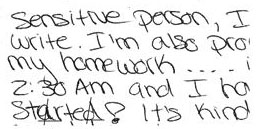 Sensitive person, I
write. I'm also pro
my homework .... i
2:30 Am and I ha
Started? It's kind